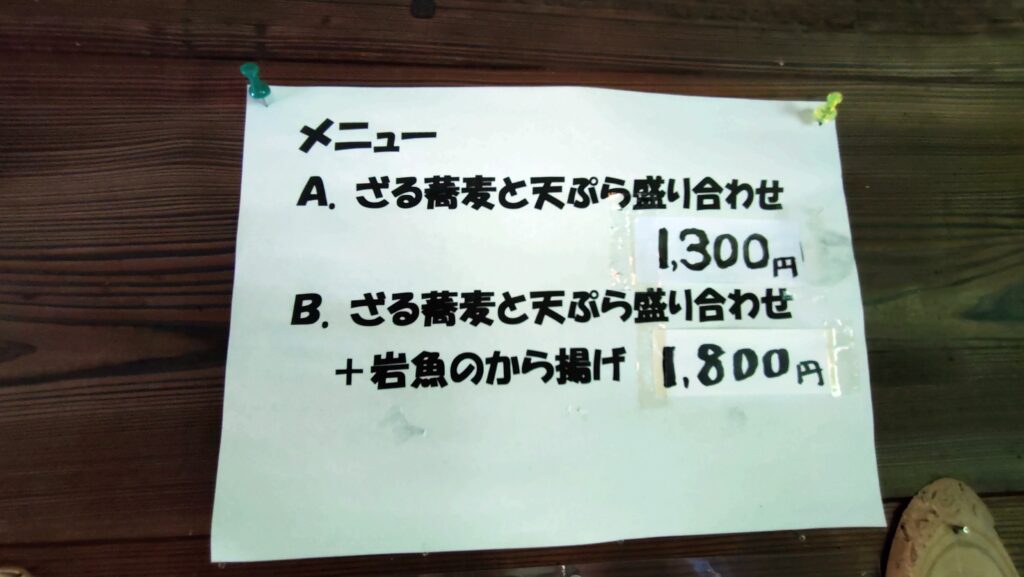 メニュー
A. ざる蕎麦と天ぷら盛り合わせ
1,300円
B. ざる蕎麦と天ぷら盛り合わせ
＋岩魚のから揚げ 1,800円